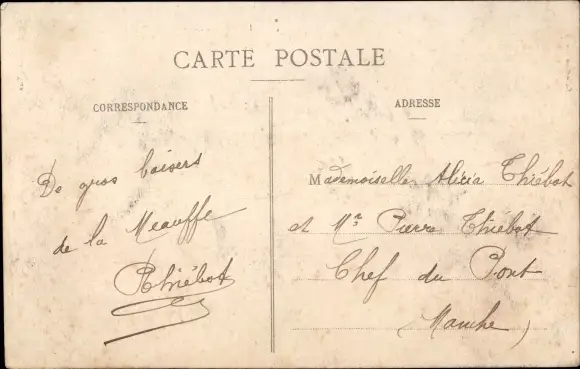 CARTE POSTALE
CORRESPONDANCE
ADRESSE
De gros baisers
de la Meauffe
PThiébot
Mademoiselle Alicia Thiébot
et Mr Pierre Thiébot
Chef du Pont
(Manche)